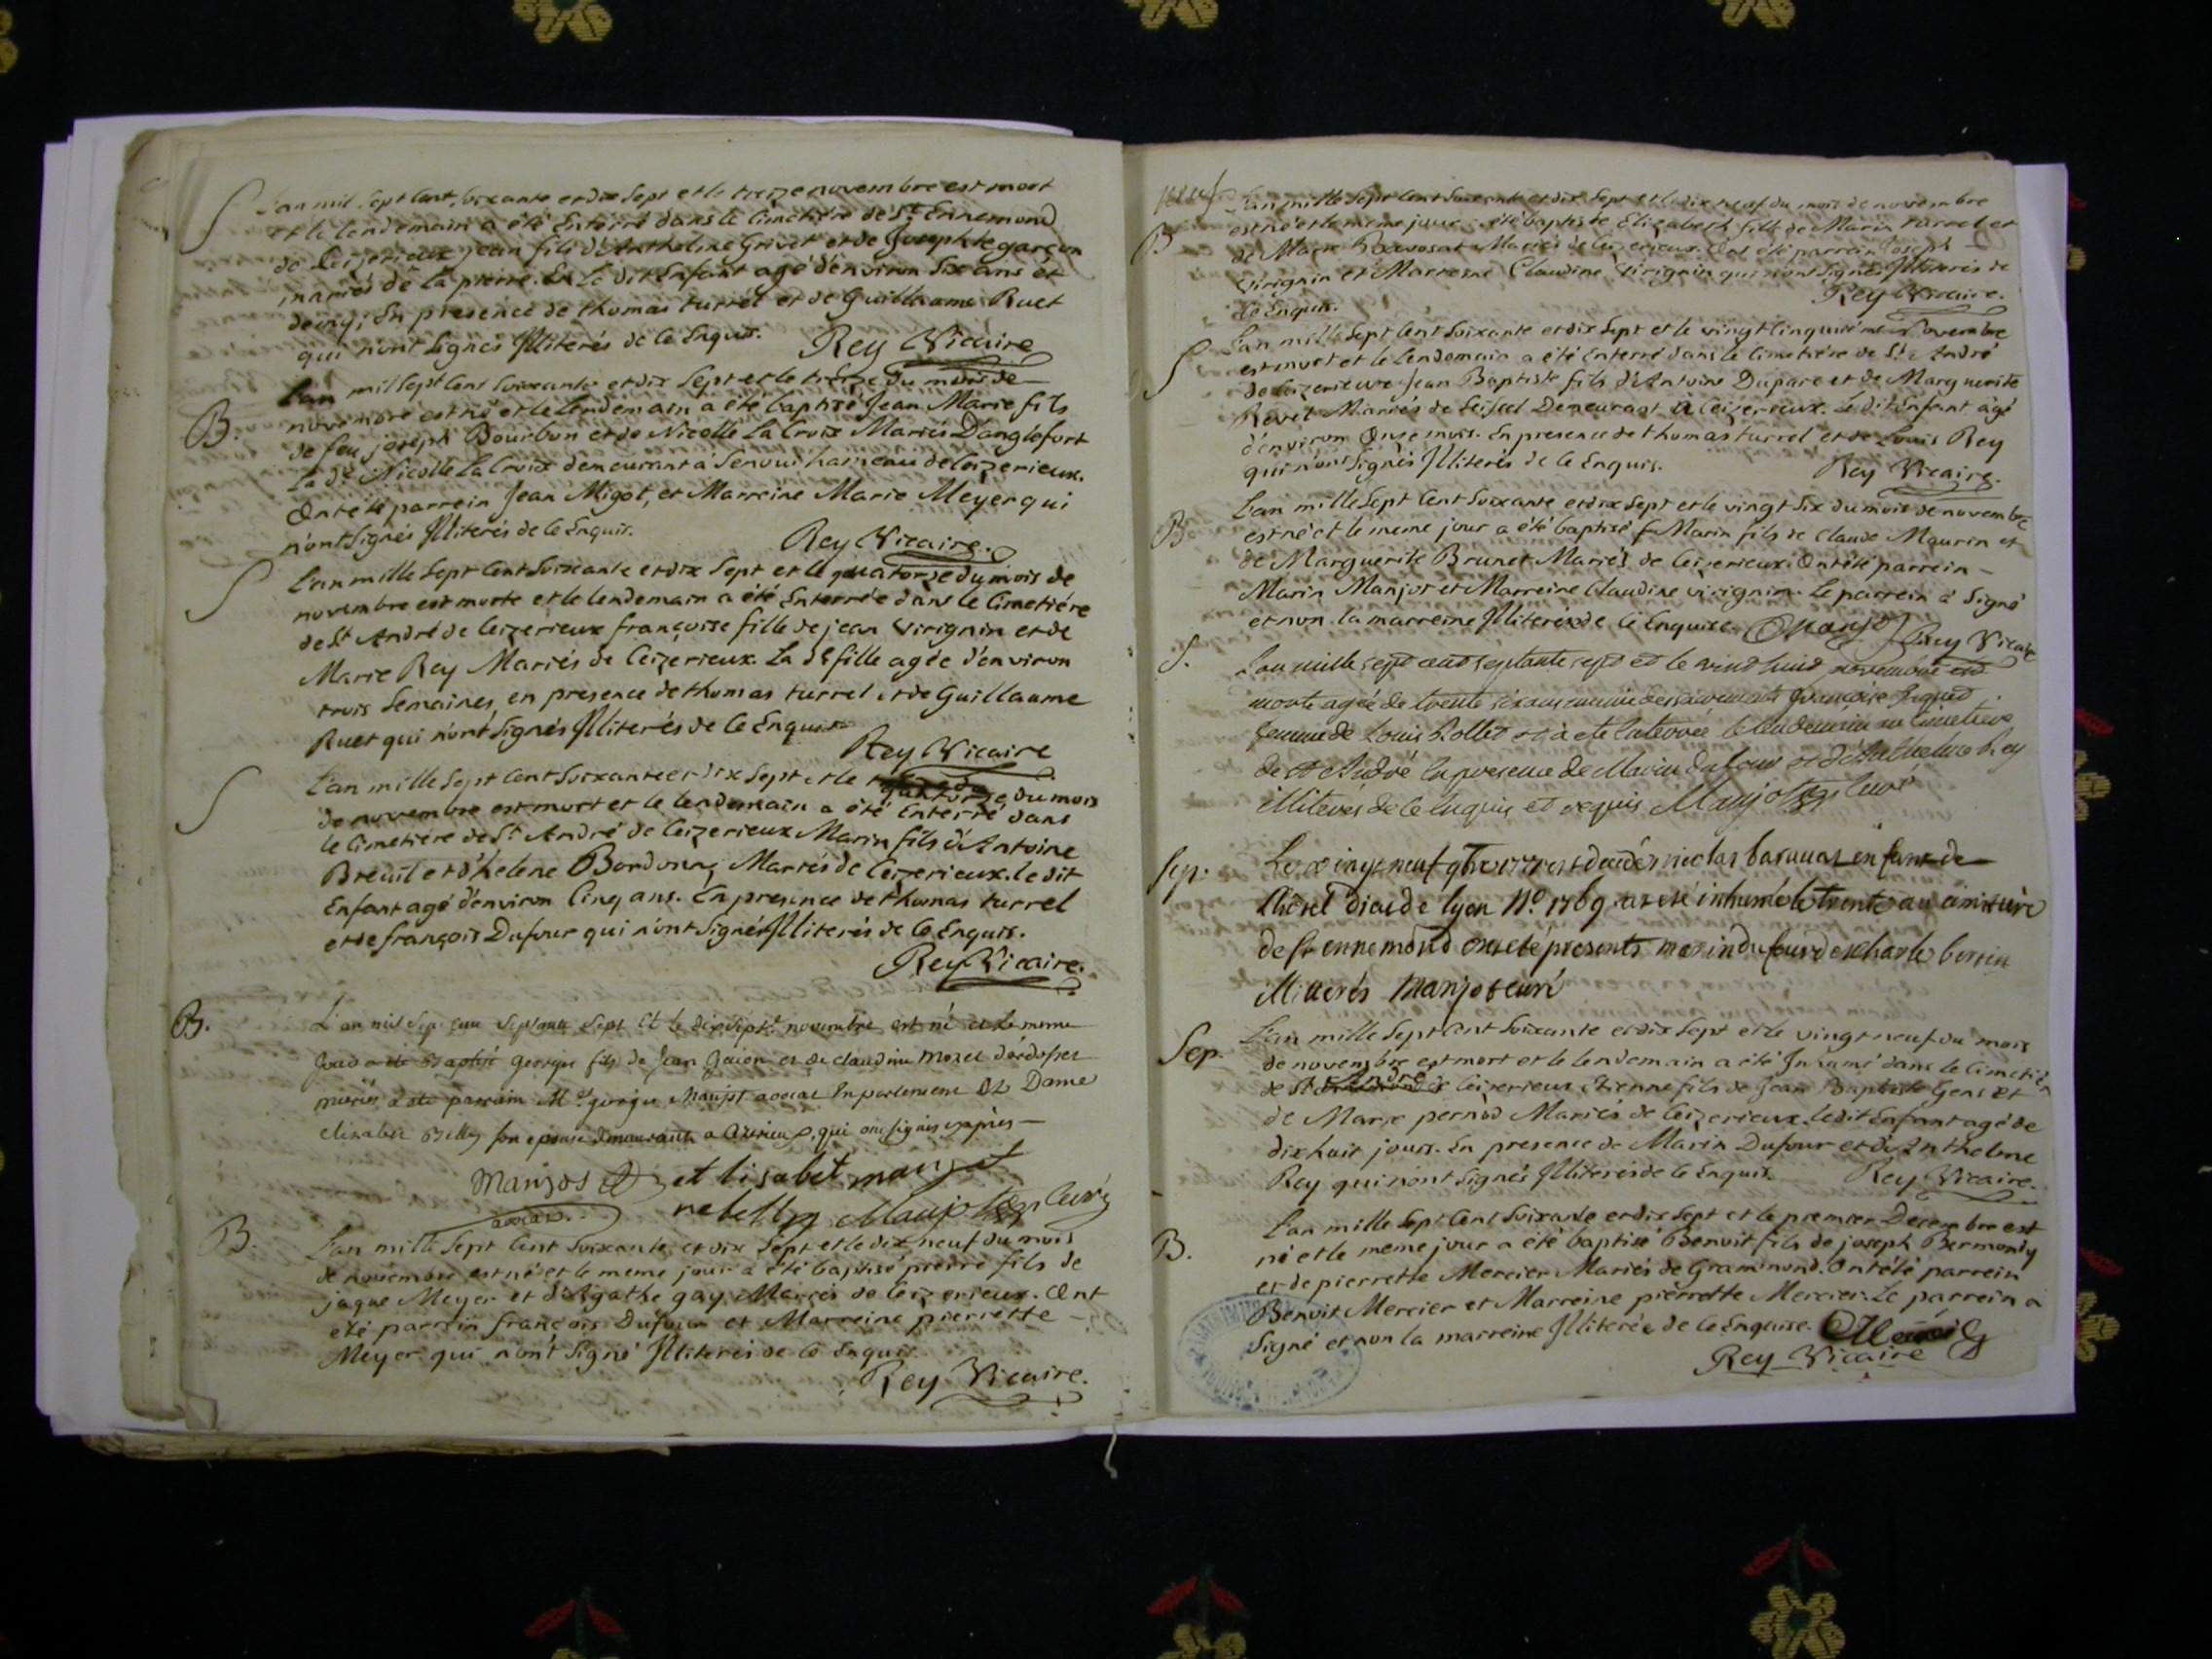 S L'an mil Sept Cent Soixante et dix Sept et le treize novembre est mort
et le lendemain a été Enterré dans le Cimetière de St Ennemond
de Ceizerieux jean fils d'Anthelme Grivet et de Josephte garçon
mariés de la pierre. Le dit Enfant agé d'environ Six ans et
demy, En presence de thomas turrel et de Guillaume Ruet
qui n'ont Signés Illiterés de ce Enquis. Rey Vicaire
B. L'an mil Sept Cent Soixante et dix Sept et le treize du mois de
novembre est né et le lendemain a été baptisé Jean Marie fils
de feu joseph Bourbon et de Nicolle La Croix Mariés D'anglefort
la de Nicolle La Croix demeurant à hameau de Ceizerieux.
Ont été parrein Jean Migot, et Marreine Marie Meyer qui
n'ont Signés Illiterés de ce Enquis. Rey Vicaire.
S L'an mille Sept Cent Soixante et dix Sept et le quatorze du mois de
novembre est morte et le lendemain a été Enterrée dans le Cimetiére
de St André de Ceizerieux françoise fille de jean Virignin et de
Marie Rey Mariés de Ceizerieux. La de fille agée d'environ
trois Semaines, en presence de thomas turrel et de Guillaume
Ruet qui n'ont Signés Illiterés de ce Enquis
Rey Vicaire
S L'an mille Sept Cent Soixante et dix Sept et le quatorze du mois
de novembre est mort et le lendemain a été Enterré dans
le Cimetiére de St André de Ceizerieux Marin fils d'Antoine
Breuil et d'helene Mariés de Ceizerieux. le dit
Enfant agé d'environ Cinq ans. En presence de thomas turrel
et de françois Dufour qui n'ont Signés Illiterés de ce Enquis.
Rey Vicaire.
B. L'an mil Sept cent Septante Sept Et le dixsept novembre est né et le meme
a été Baptisé george fils de Jean et de claudine Morel
mariés a été parrain Mr george Manjot avocat En parlement Et Dame
elisabet Belly son epouse demeurants a qui ont signés
Manjot et lisabet manjot
avocat. ne belly Manjot Curé
B. L'an mille Sept Cent Soixante et dix Sept et le dix neuf du mois
de novembre est né et le meme jour a été baptisé pierre fils de
jaque Meyer et d'Agathe gay Mariés de Ceizerieux. Ont
été parrein françois Dufour et Marreine pierrette
Meyer qui n'ont Signé Illiterés de ce Enquis.
Rey Vicaire.
L'an mille Sept Cent Soixante et dix Sept et le dix neuf du mois de novembre
B est né et le meme jour a été baptisée Elizabeth fille de Marin turrel et
de Marie Mariés de Ceizerieux. Ont été parrein Joseph
Virignin et Marreine Claudine Virignin qui n'ont Signés Illiterés de
ce Enquis. Rey Vicaire.
S L'an mille Sept Cent Soixante et dix Sept et le vingt Cinquiéme Novembre
est mort et le lendemain a été Enterré dans le Cimetiére de St André
de Ceizerieux Jean Baptiste fils d'Antoine Dupare et de Marguerite
Revet Mariés de Seissel Demeurant à Ceizerieux. Le dit Enfant agé
d'environ Onze mois. En presence de thomas turrel et de Louis Rey
qui n'ont Signés Illiterés de ce Enquis. Rey Vicaire.
B L'an mille Sept Cent Soixante et dix Sept et le vingt Six du mois de novembre
est né et le meme jour a été baptisé Marin fils de Claude Maurin et
de Marguerite Brunet Mariés de Ceizerieux. Ont été parrein
Marin Manjot et Marreine Claudine virignin. Le parrein à Signé
et non la marreine Illiterée de ce Enquise. Manjot Rey Vicaire
S. L'an mille sept cent septante sept et le vind huid novembre est
morte agée de trente six ans munie des sacrements françoise
femme de Louis Rollet et à été Enterrée le lendemain au Cimetiere
de St André En presence de Marin dufour et d'Anthelme Rey
illiterés de ce Enquis et requis Manjot Curé
Sep. Le vingt neuf 9bre 1777 est decedé nicolas enfant de
de lyon No. 1769 et a été inhumé le trente au cimetiere
de St ennemond ont été presents marin dufour et charle
illiterés Manjot curé
Sep. L'an mille Sept Cent Soixante et dix Sept et le vingt neuf du mois
de novembre est mort et le lendemain a été Inhumé dans le Cimetiére
de St André de Ceizerieux Etienne fils de Jean Baptiste Gens et
de Marie pernod Mariés de Ceizerieux. Ledit Enfant agé de
dix huit jours. En presence de Marin Dufour et de Anthelme
Rey qui n'ont Signés Illiterés de ce Enquis. Rey Vicaire.
B. L'an mille Sept Cent Soixante et dix Sept et le premier Decembre est
né et le meme jour a été baptisé Benoit fils de joseph Bermondy
et de pierrette Mercier Mariés de Grammond. Ont été parrein
Benoit Mercier et Marreine pierrette Mercier. Le parrein a
Signé et non la marreine Illiterée de ce Enquise.
Rey Vicaire